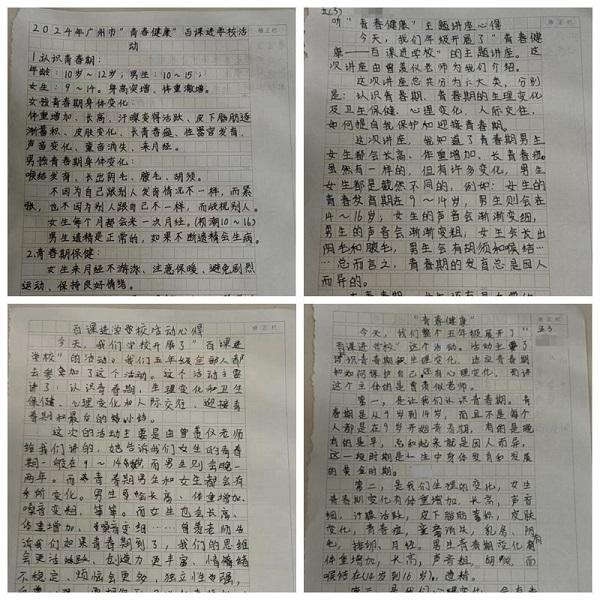 2024年广州市"青春健康"百课进学校活
动
1.认识青春期:
年龄:10岁~12岁;男生:10~15;
女生:9~14。身高突增、体重激增。
女孩青春期身体变化:
体重增加、长高、汗腺变得活跃、皮下脂肪逐
渐蓄积、皮肤变化、长青春痘、性器官发育、
声音变化、童音消失、来月经。
男孩青春期身体变化:
喉结发育、长出阴毛、腋毛、胡须。
不因为自己跟别人发育情况不一样,而累
歌,也不因为别人跟自己不一样,而歧视别人。
女生每个月都会来一次月经。(初潮10~16)
男生遗精是正常的,如果不断遗精会生病。
2.青春期保健:
女生来月经不游泳、注意保暖、避免剧烈
运动、保持良好情绪。
听"青春健康"主题讲座心得
今天,我们年级开展了"青春健
康——百课进学校"的主题讲座。这
次讲座由曾景仪老师为我们介绍。
这次讲座总共分为六大类,分别
是:认识青春期、青春期的生理变化
及卫生保健、心理变化、人际交往、
如何提自我保护和迎接青春期。
这次讲座,我知道了青春期男生
女生都会长高、体重增加、长青春痘。
虽然有一样的,但有许多变化,男生
女生都是截然不同的,例如:女生的
青春发育期在9~14岁,男生则会在
14~16岁;女生的声音会渐渐变细,
男生的声音会渐渐变粗;女生会长出
阴毛和腋毛,男生会有胡须和喉结……
……总而言之,青春期的发育总是因人
而异的。
百课进学校活动心得
今天,我们学校开展了"百课进
学校"的活动。我们五年级全部人都
去参加了这个活动。这个活动主要
讲了:认识青春期、生理变化和卫生
保健、心理变化和人际交往、迎接青
春期和最后的
这次的活动主要是由曾景仪老师
给我们讲的,她告诉我们女生的青春
期一般在9~14岁,而男生则会晚一
两年。而青春期男生和女生都会有
不同变化。男生会长高、体重增加、
嗓音变粗,等等。而女生也会长高、
体重增加、嗓音 ……曾景老师告
诉我们如果青春期到了,我们的思维
会更活跃、创造力更丰富、情绪
不稳定、烦恼会更多、独立性也强,
"青春健康"
今天,我们整个五年级展开了"
百课进学校"这个活动。活动主要了
解识青春期和生理变化,适应青春期
和如何保护自己,还有心理变化,而讲
这个主体的是曾景仪老师。
第一,是让我们认识青春期。青春
期是从9岁到14岁,而且不是每个
人都是在9岁开始青春期,有的是晚
有的是早,总和起来就是因人而异,
这一段时期是一生中身体发育和发展
的黄金时期。
第二,是我们生理的变化,女生
青春期变化有体重增加、长高、声音
细、汗腺活跃、皮下脂肪蓄积、皮肤
变化、青春痘、童音消失、乳房、阴
毛、月经。男生青春期变化有
体重增加,长高,声音粗,胡须,而
喉结在(14岁到16岁),遗精。